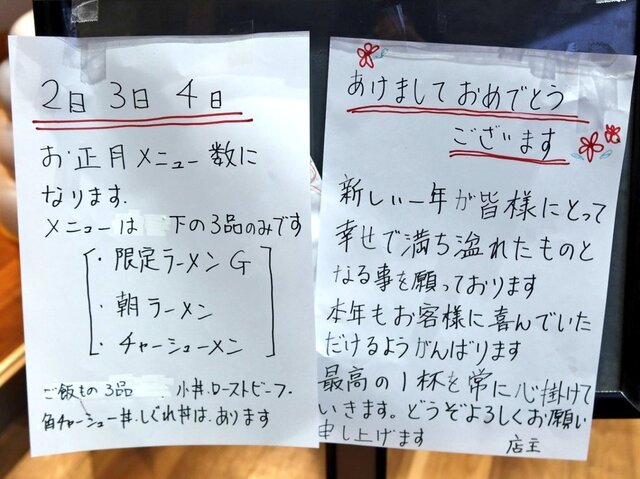 2日 3日 4日
お正月メニュー数に
なります.
メニューは 下の3品のみです
・限定ラーメンG
・朝ラーメン
・チャーシューメン
ご飯もの3品 小丼.ローストビーフ.
角チャーシュー丼.しぐれ丼は.あります
あけまして おめでとう
ございます
新しい一年が皆様にとって
幸せで満ち溢れたものと
なる事を願っております
本年もお客様に喜んでいた
だけるようがんばります
最高の1杯を常に心掛けて
いきます。どうぞよろしくお願い
申し上げます 店主